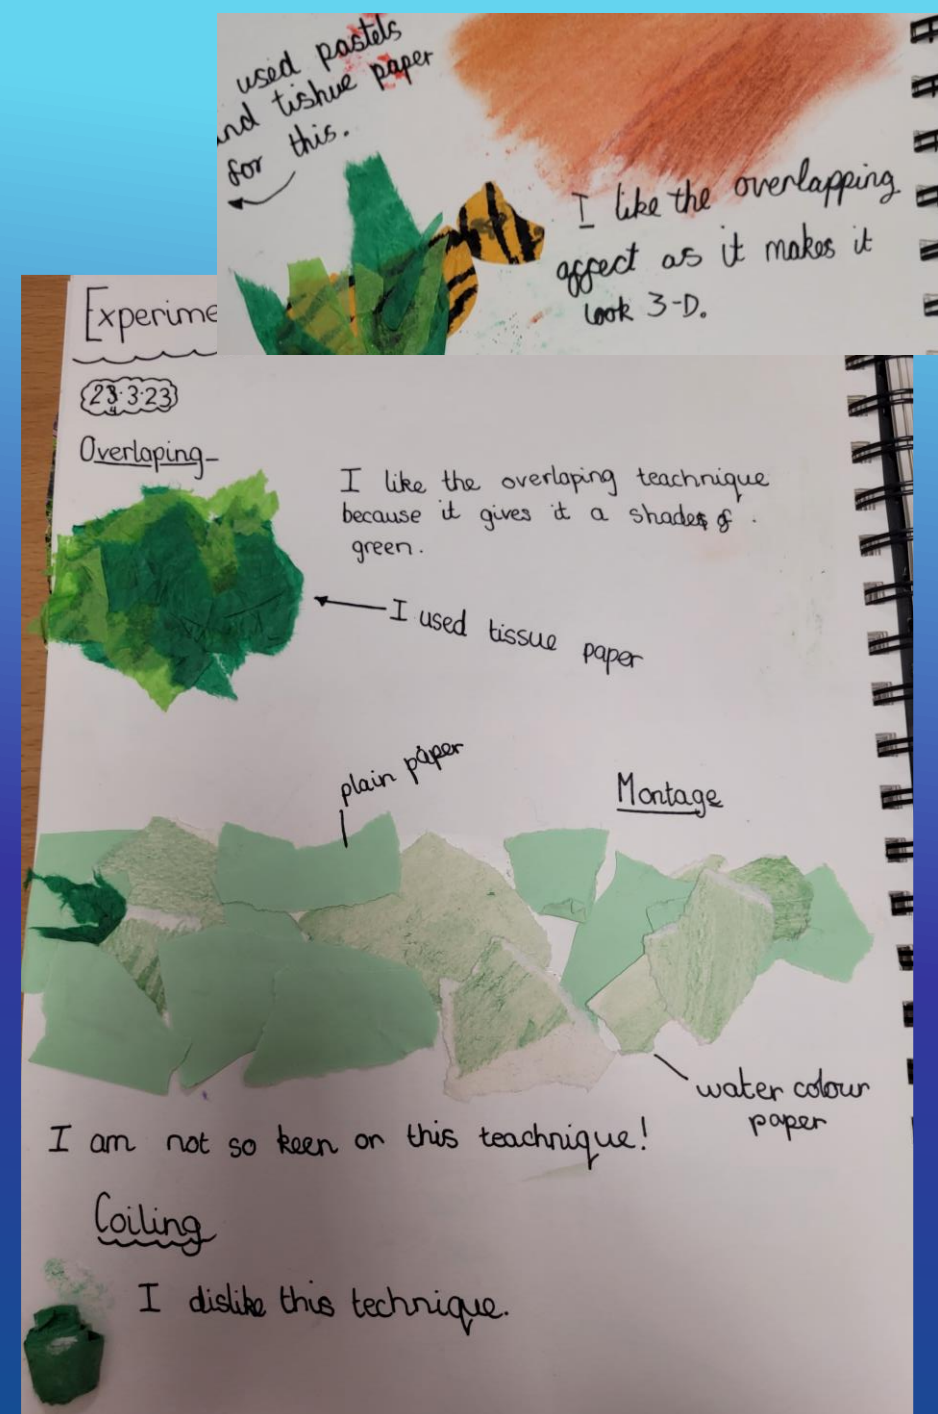 used pastels
and tishue paper
for this.
I like the overlapping
affect as it makes it
look 3-D.
Experime
28.3.23
Overlaping-
I like the overlaping teachnique
because it gives it a shades of
green.
I used tissue paper
plain paper
Montage
water colour
paper
I am not so keen on this teachnique!
Coiling
I dislike this technique.